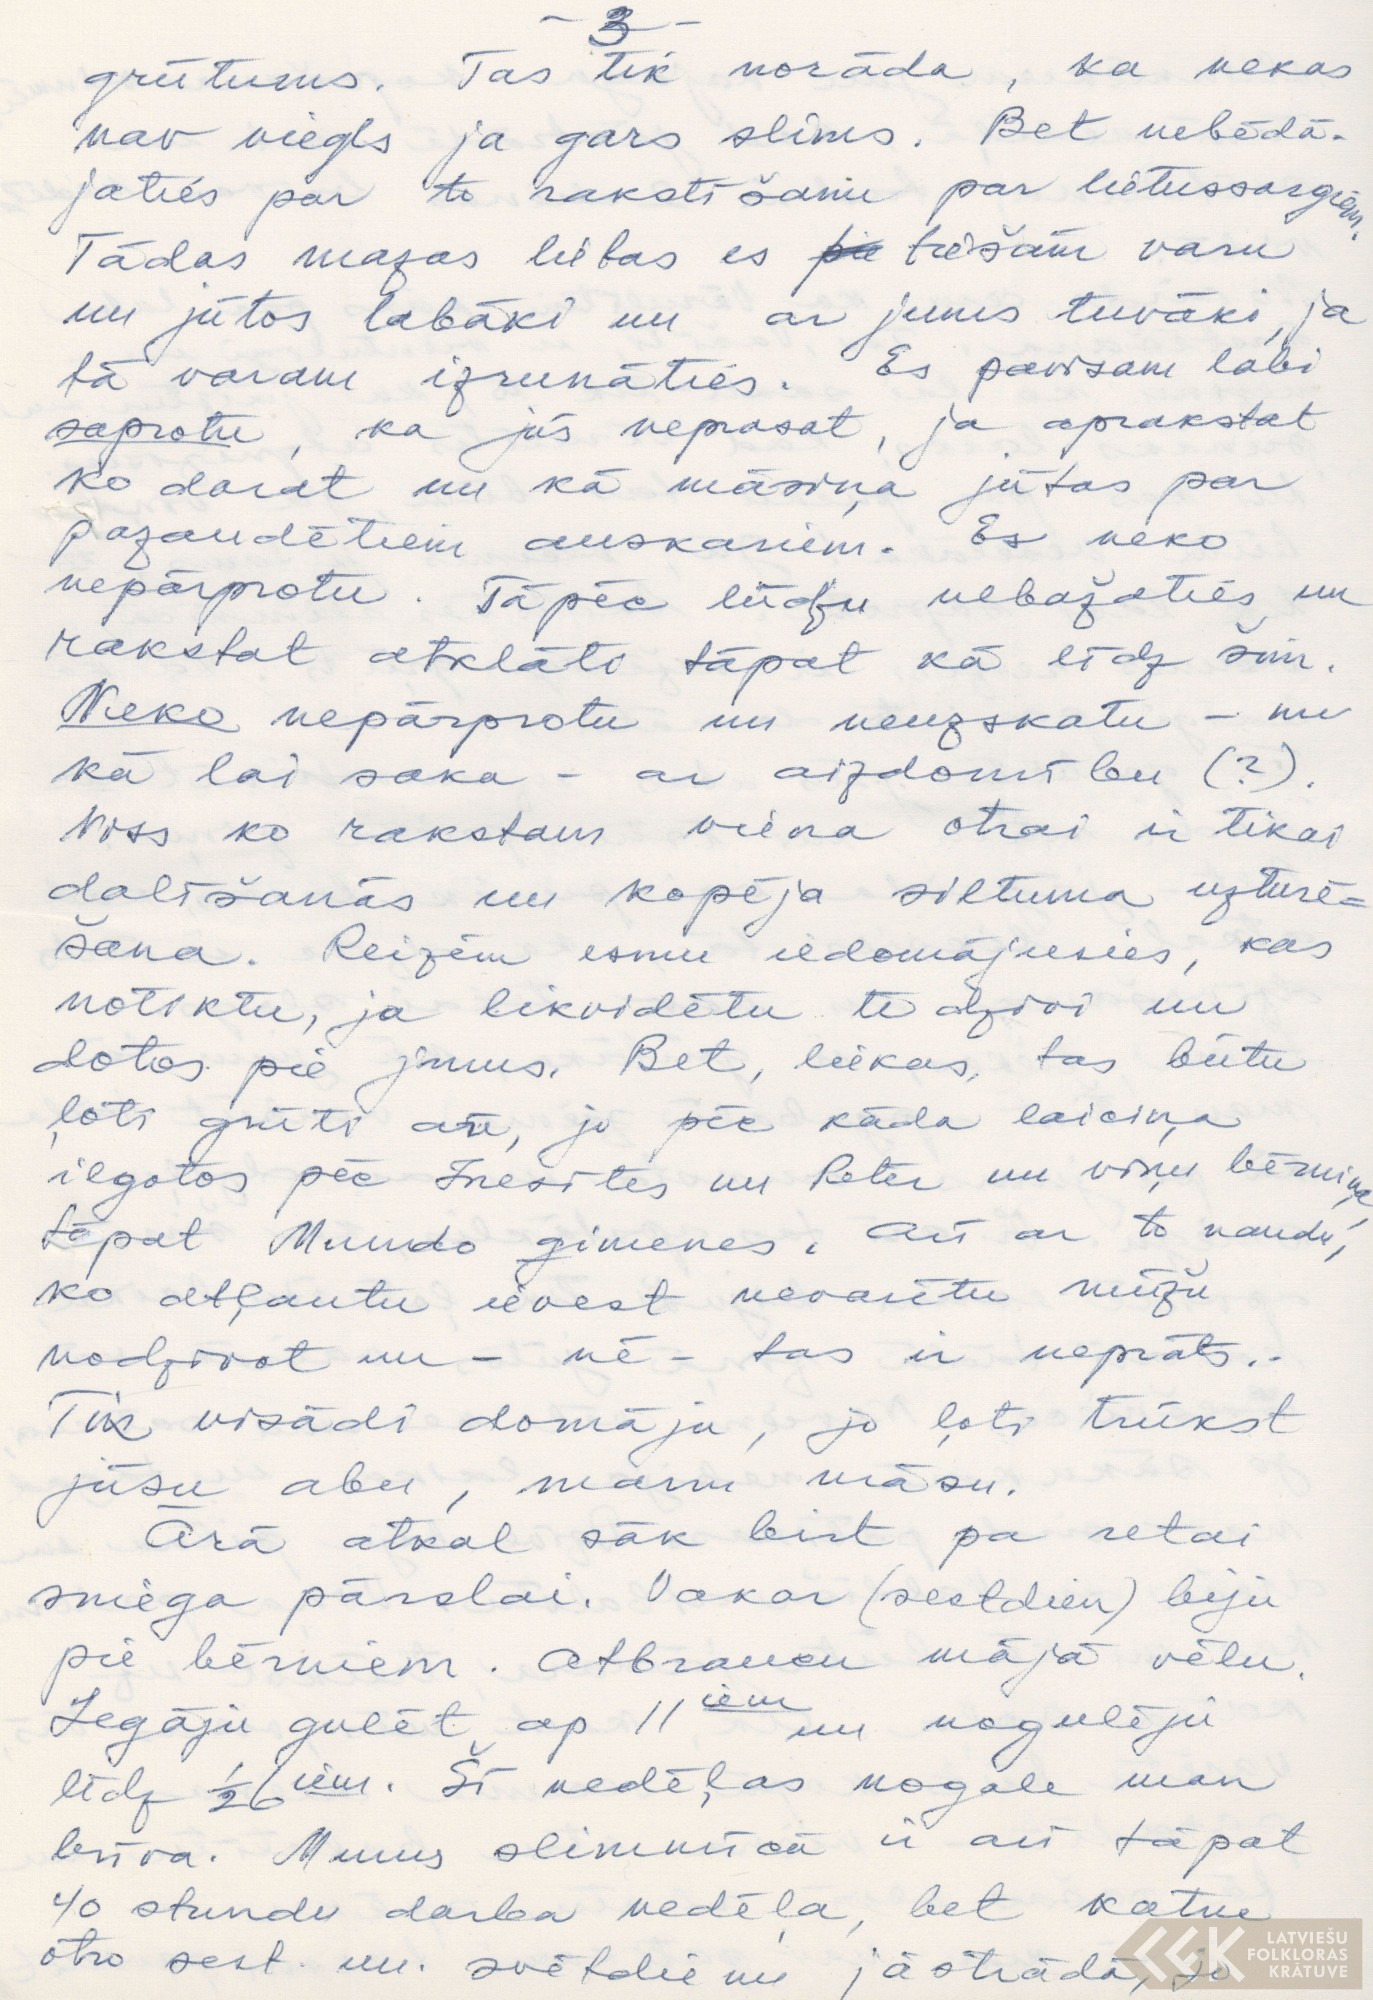 - 3 -
grūtums. Tas tik norāda, ka nekas
nav viegls ja gars slims. Bet nebēdā-
jaties par to rakstīšanu par lietussargiem.
Tādas mazas lietas es tiešām varu
un jūtos labāki un ar jums tuvāki, ja
tā varam izrunāties. Es pavisam labi
saprotu, ka jūs neprasat, ja aprakstat
ko darat un kā māsiņa jūtas par
pazaudētiem auskariem. Es neko
nepārprotu. Tāpēc lūdzu nebažaties un
rakstat atklāti tāpat kā līdz šim.
Neko nepārprotu un neuzskatu - nu
kā lai saka - ar aizdomību (?).
Viss ko rakstam viena otrai ir tikai
dalīšanās un kopēja siltuma uzturē=
šana. Reizēm esmu iedomājusies, kas
notiktu, ja likvidētu te dzīvi un
dotos pie jums. Bet, liekas, tas būtu
ļoti grūti arī, jo pēc kāda laiciņa
ilgotos pēc Inesītes un Peter un viņu bērniņa,
tāpat Mundo ģimenes. Arī ar to naudu,
ko atļautu ievest nevarētu mūžu
nodzīvot un - nē - tas ir neprāts..
Tik visādi domāju, jo ļoti trūkst
jūsu abu, manu māsu.
Ārā atkal sāk birt pa retai
sniega pārslai. Vakar (sestdien) biju
pie bērniem. Atbraucu mājā vēlu.
Iegāju gulēt ap 11iem un nogulēju
līdz 1/2 6iem. Šī nedēļas nogale man
brīva. Mums slimnīcā ir arī tāpat
40 stundu darba nedēļa, bet katru
otro sest. un. svētdienu jāstrādā, jo
LATVIEŠU
FOLKLORAS
KRĀTUVE